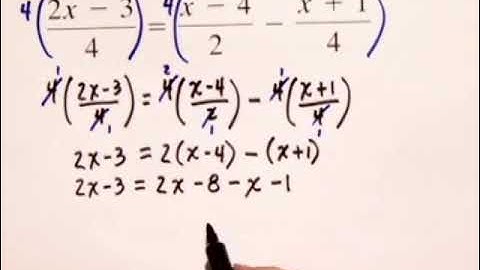 4((2x - 3)/4) = 4((x - 4)/2 - (x + 1)/4)
4((2x-3)/4) = 4((x-4)/2) - 4((x+1)/4)
2x-3 = 2(x-4) - (x+1)
2x-3 = 2x-8-x-1